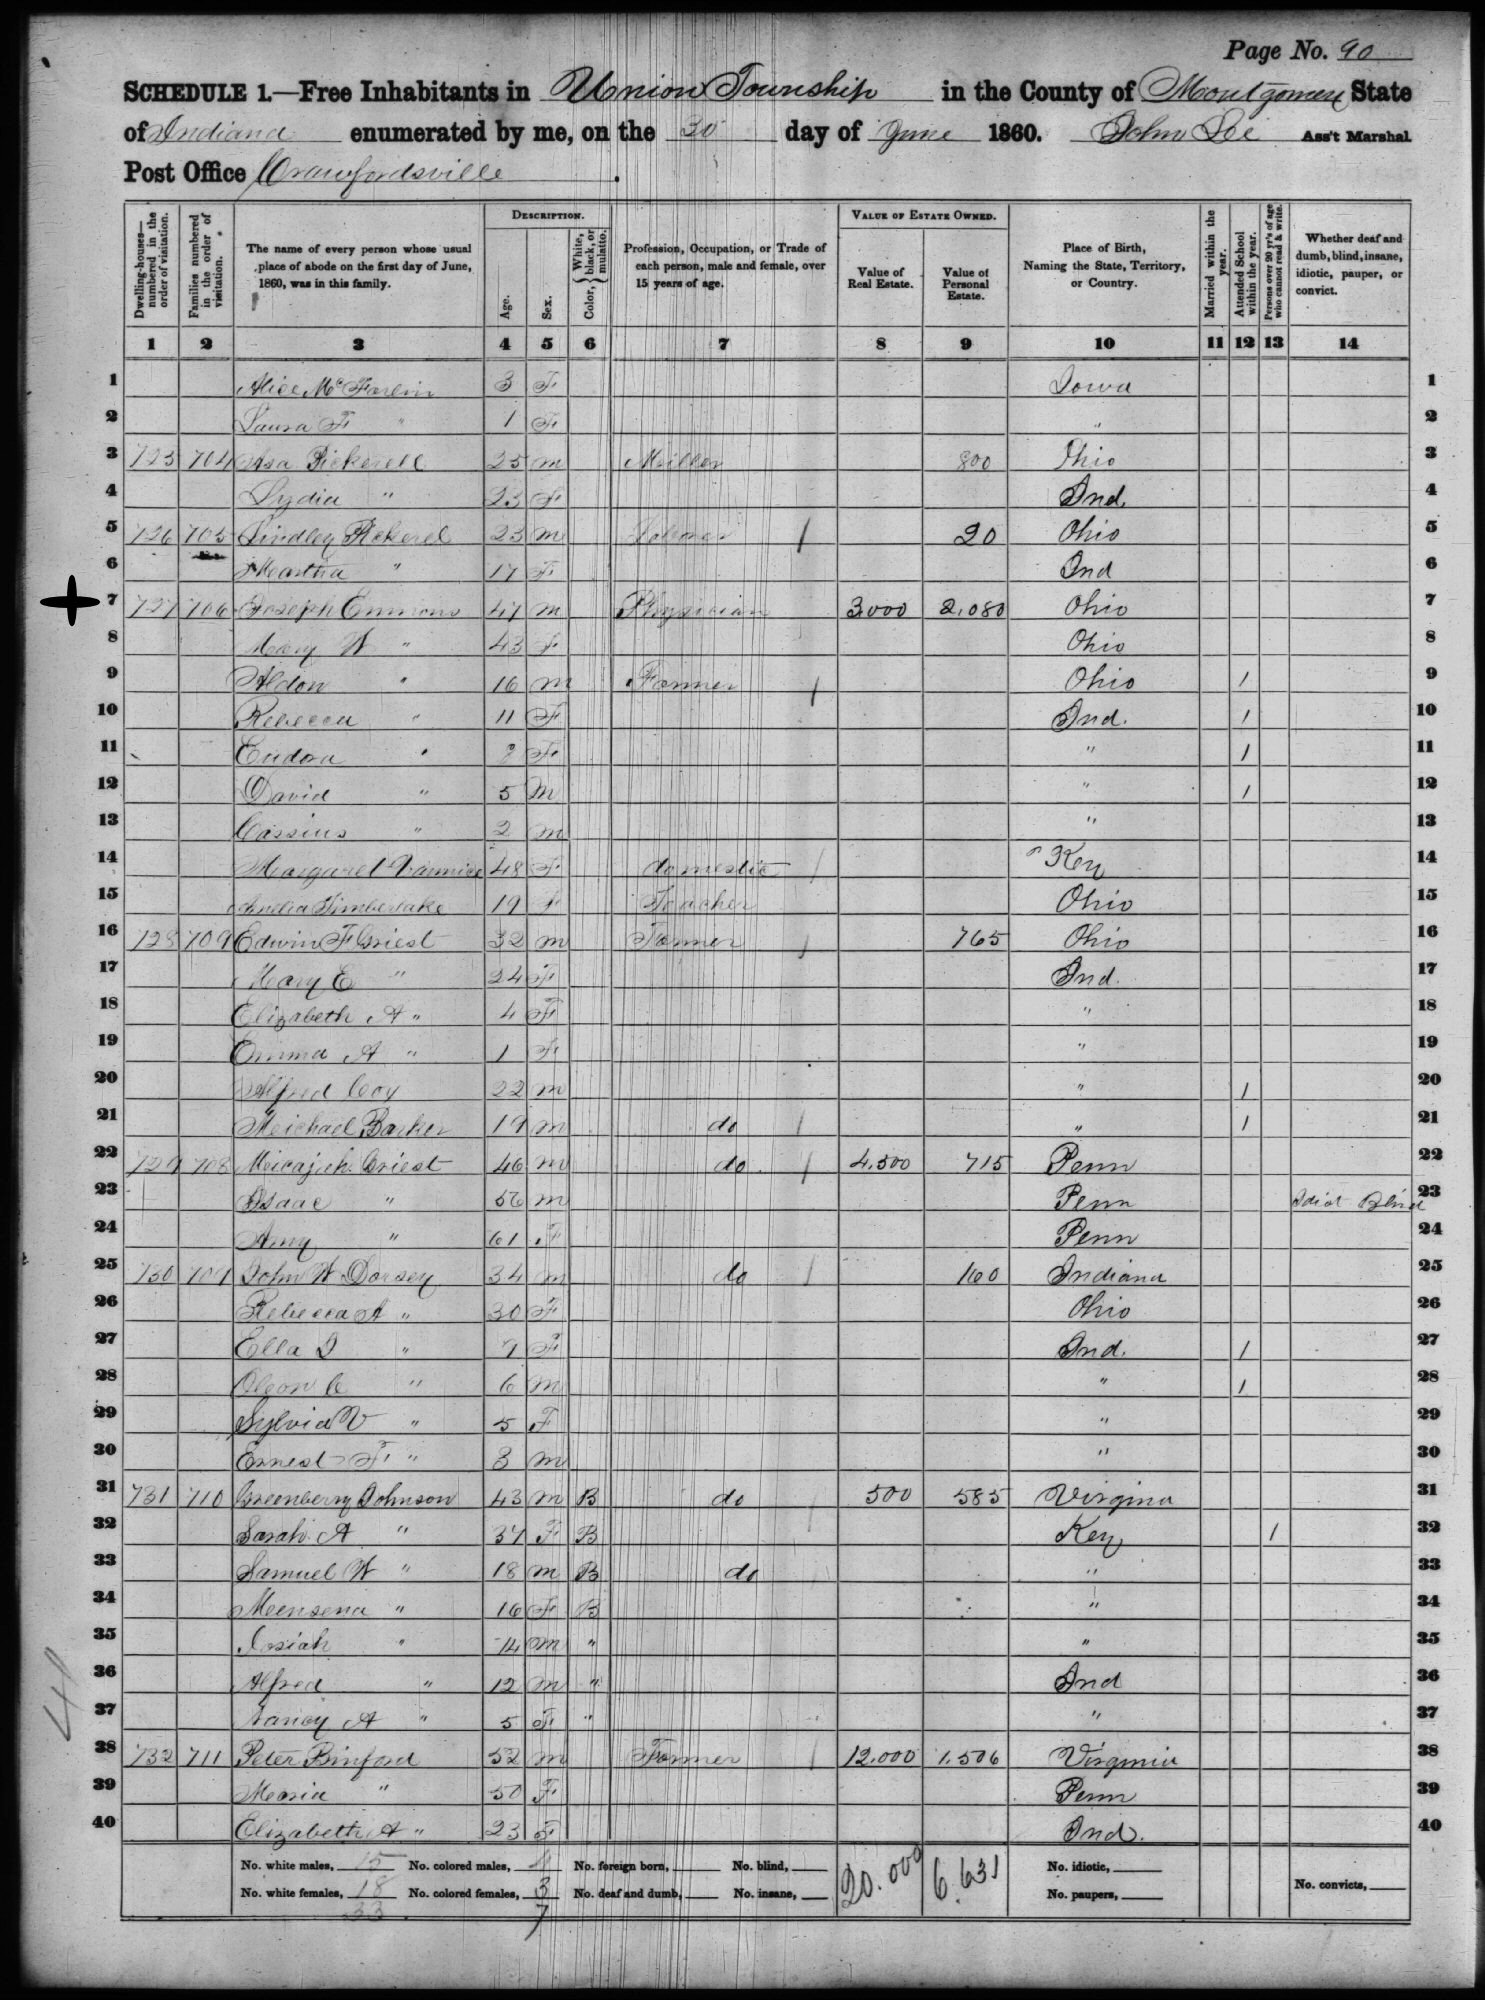 Page No. 90
SCHEDULE 1.—Free Inhabitants in Union Township in the County of Montgomery State
of Indiana enumerated by me, on the 30 day of June 1860. John Lee Ass't Marshal
Post Office Crawfordsville.
Dwelling-houses—numbered in the order of visitation.
Families numbered in the order of visitation.
The name of every person whose usual place of abode on the first day of June, 1860, was in this family.
DESCRIPTION.
Age.
Sex.
Color, { White, black, or mulatto.
Profession, Occupation, or Trade of each person, male and female, over 15 years of age.
VALUE OF ESTATE OWNED.
Value of Real Estate.
Value of Personal Estate.
Place of Birth, Naming the State, Territory, or Country.
Married within the year.
Attended School within the year.
Persons over 20 yr's of age who cannot read & write.
Whether deaf and dumb, blind, insane, idiotic, pauper, or convict.
1 2 3 4 5 6 7 8 9 10 11 12 13 14
1 Alice McFarlin 3 F Iowa 1
2 Laura F " 1 F " 2
3 725 704 Asa Pickerell 25 m Miller 800 Ohio 3
4 Lydia " 23 F Ind. 4
5 726 705 Lindley Pickerel 23 m Laborer / 20 Ohio 5
6 Martha " 17 F Ind 6
7 727 706 Joseph Emmons 47 m Physician 3,000 2,080 Ohio 7
8 Mary W " 43 F Ohio 8
9 Aldon " 16 m Farmer / Ohio / 9
10 Rebecca " 11 F Ind. / 10
11 Eudora " 8 F " / 11
12 David " 5 m " / 12
13 Cassius " 2 m " 13
14 Margaret Vannice 48 F domestic / Key 14
15 Timberlake 19 F Teacher Ohio 15
16 728 709 Edwin F Griest 32 m Farmer / 765 Ohio 16
17 Mary E " 24 F Ind. 17
18 Elizabeth A " 4 F " 18
19 Emma A " 1 F " 19
20 Alfred Coy 22 m " / 20
21 Meichael Barker 19 m do / " / 21
22 729 708 Micajah Griest 46 m do / 4,500 715 Penn 22
23 Isaac " 56 m Penn Idiot Blind 23
24 Amy " 61 F Penn 24
25 730 709 John W Dorsey 34 m do / 160 Indiana 25
26 Rebecca A " 30 F Ohio 26
27 Ella I " 9 F Ind. / 27
28 Oleon C " 6 m " / 28
29 Sylvia V " 5 F " 29
30 Ernest F " 3 m " 30
31 731 710 Greenberry Johnson 43 m B do 500 585 Virginia 31
32 Sarah A " 37 F B Key / 32
33 Samuel W " 18 m B do " 33
34 " 16 F B " 34
35 Josiah " 14 m " " 35
36 Alfred " 12 m " Ind 36
37 Nancy A " 5 F " " 37
38 732 711 Peter Binford 52 m Farmer / 12,000 1,506 Virginia 38
39 Maria " 50 F Penn 39
40 Elizabeth A " 23 F Ind. 40
No. white males, 15 No. colored males, 4 No. foreign born, No. blind, 20.000 6.631 No. idiotic,
No. white females, 18 No. colored females, 3 No. deaf and dumb, No. insane, No. paupers, No. convicts,
33 7